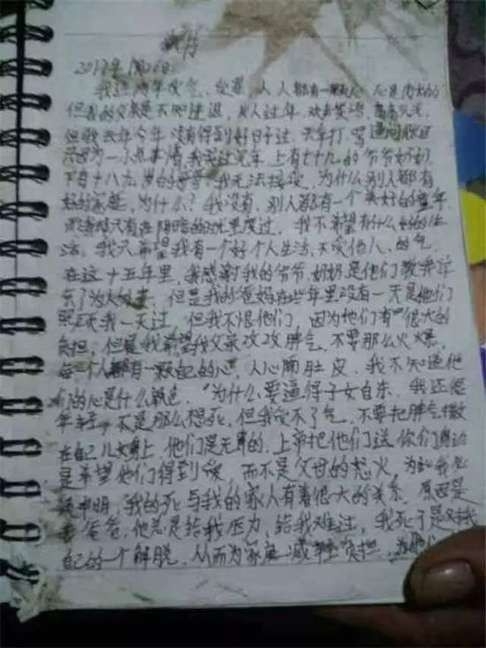 我这两年受气，
但我的父亲是不知进退，别人过年，欢声笑语，
但我去年今年没有得到好日子过，天天打，骂
只因为一点点事情，我 上有七十九的爷爷奶奶
下有十八九岁的哥哥，我无法接受，为什么别人都有
好的家庭，为什么？我没有，别人都有一个美好的童年
而我却只有在阴暗的 里度过，我不希望有什么好的生
活，我只希望我有一个好个人生活，不受他人的气
在这十五年里，我感谢我的爷爷奶奶是他们教我许
多 但是我的爸妈在些年里没有一天是他们
我一天过，但我不恨他们，因为他们有很大的
负担，但是我希望我父亲改改脾气，不要那么火爆，
每一个人都有一颗自己的心，人心隔肚皮，我不知道他
们的心是什么颜色，“为什么要逼得子女自杀，我还很
年轻，不是那么想死，但我受不了气，不要把脾气撒
在自己儿女身上，他们是无辜的，上帝把他们送你们身边
是希望他们得到爱，而不是父母的怒火，为此我必
须申明，我的死与我的家人有着很大的关系，原因是
我爸爸，他总是给我压力，给我难过，我死了是对我
自己的一个解脱，从而为家庭减轻负担，